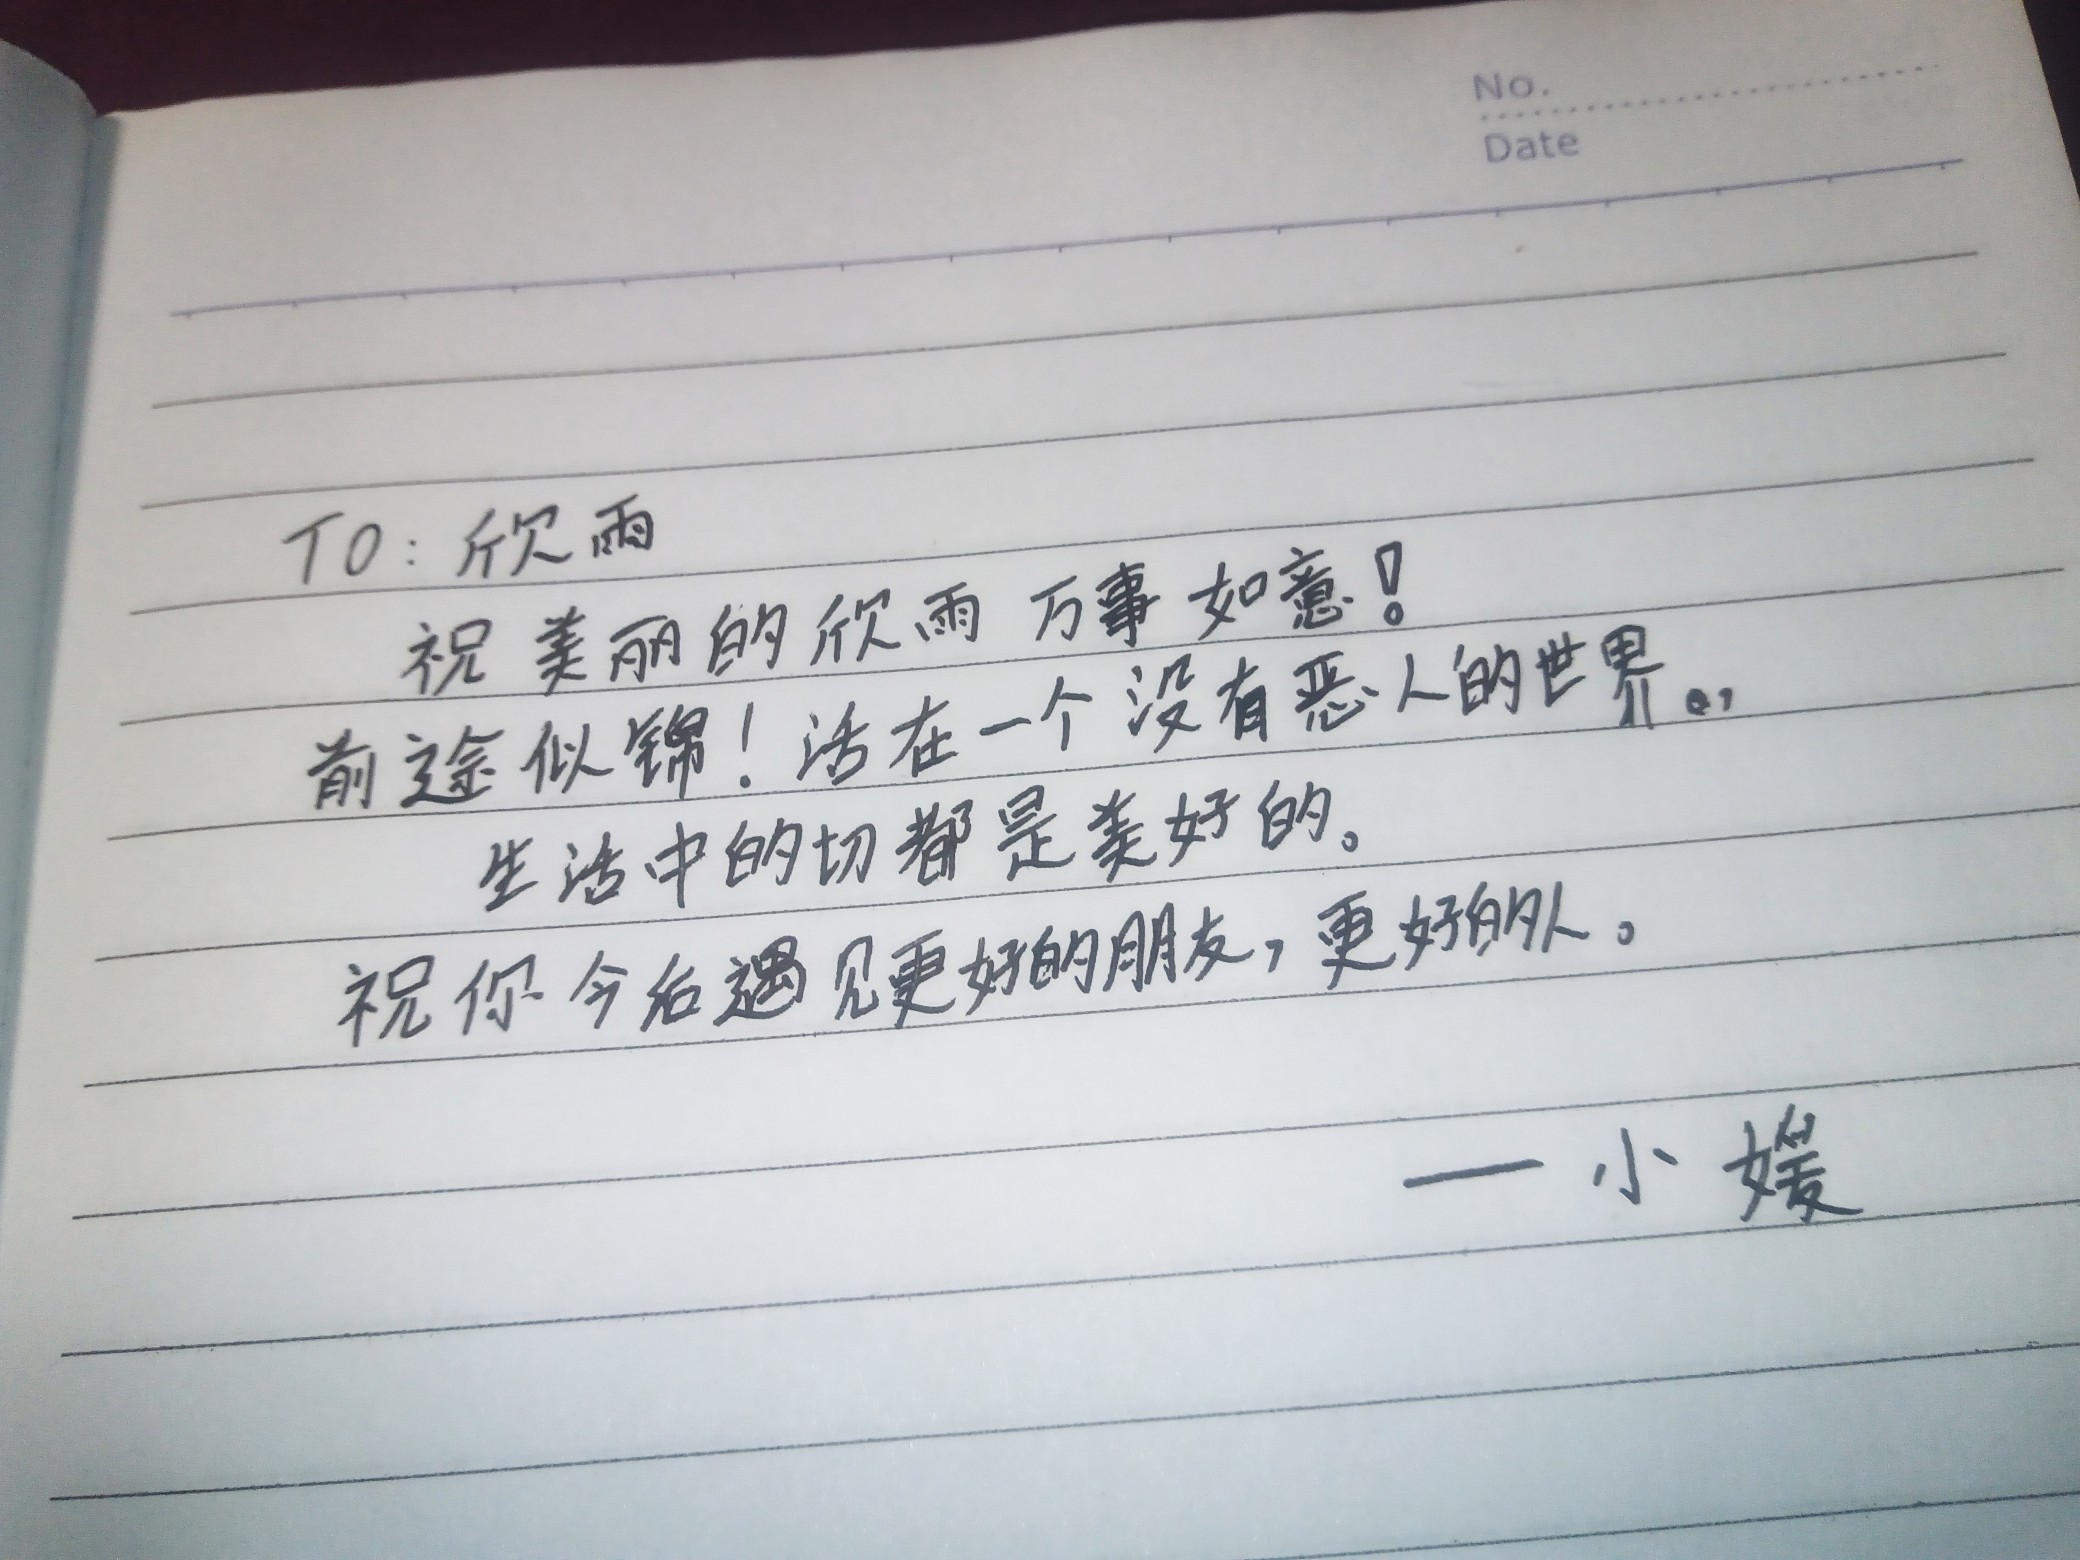 No.
Date
TO：欣雨
祝美丽的欣雨万事如意！
前途似锦！活在一个没有恶人的世界。，
生活中的切都是美好的。
祝你今后遇见更好的朋友，更好的人。
一小媛